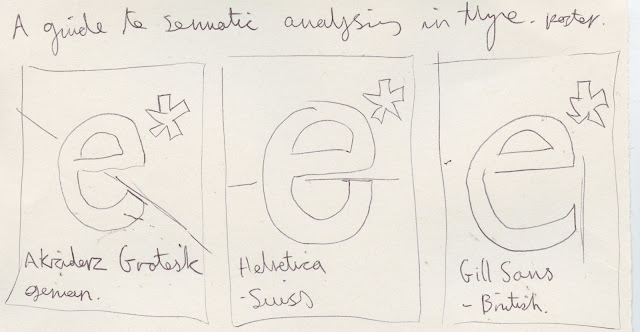 A guide to Semiotic analysis in type. poster.
e*
Akzidenz Grotesk
german.
e*
Helvetica
- Suiss
e*
Gill Sans
- British.